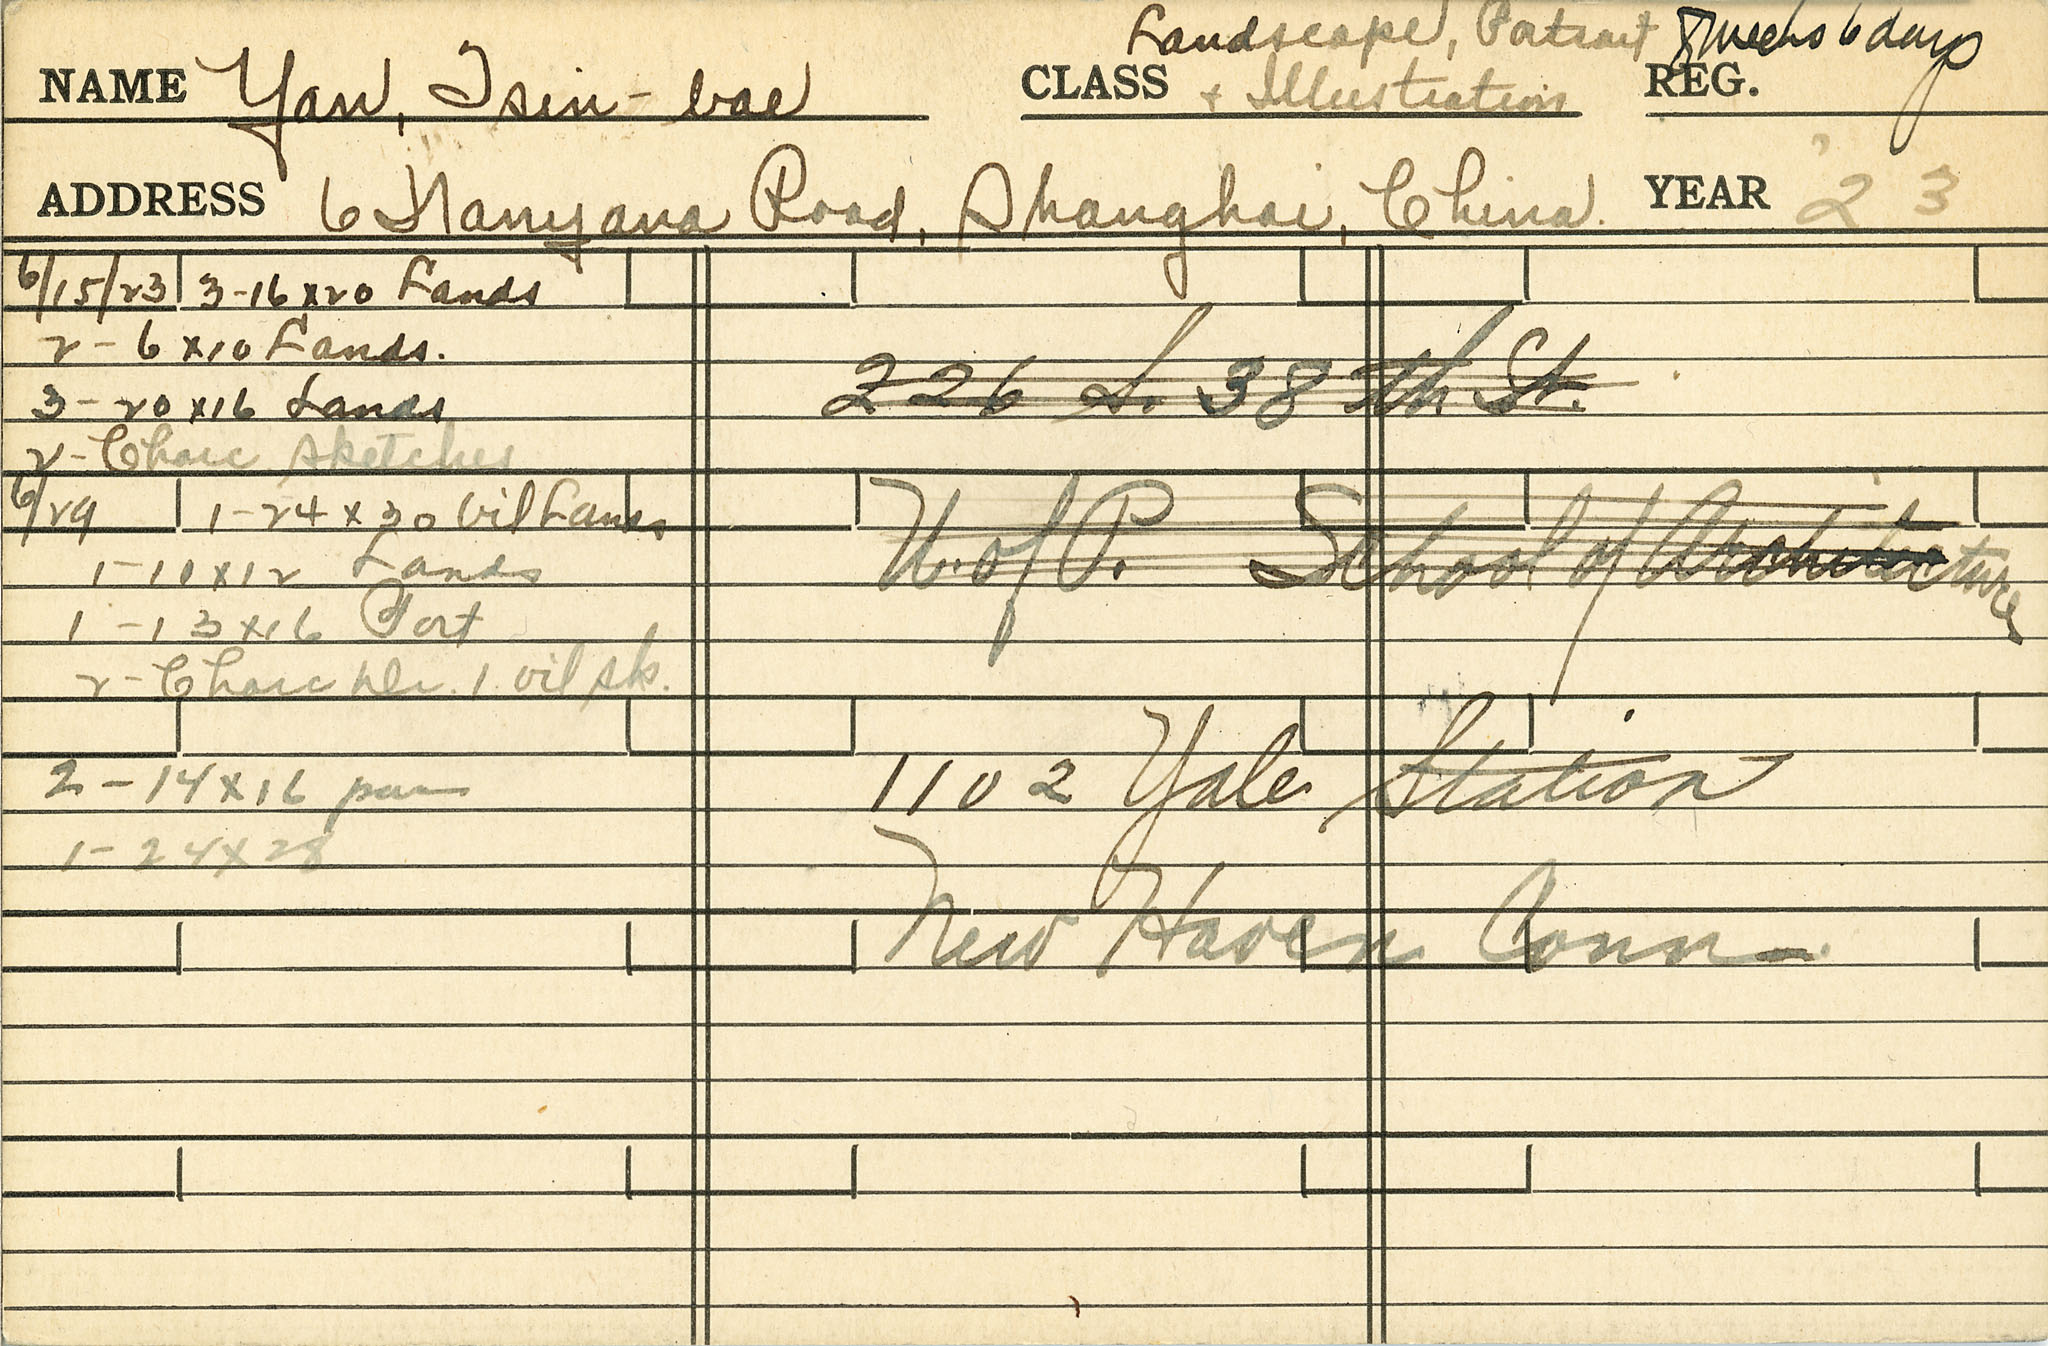 Landscape, Portrait 8 Weeks 6 days
NAME Yan, Tsin-bae CLASS + Illustration REG.
ADDRESS 6 Nanyana Road, Shanghai, China. YEAR 23
6/15/23 3-16x20 Lands
2-6x10 Lands.
226 S. 38th St.
3-20x16 Lands
2-Charc sketches
6/29 1-24x30 Oil Lands
U. of P. School of Architecture
1-10x12 Lands
1-13x16 Port
2-Charc 1 oil sk.
2-14x16
1102 Yale Station
1-24x28
New Haven Conn